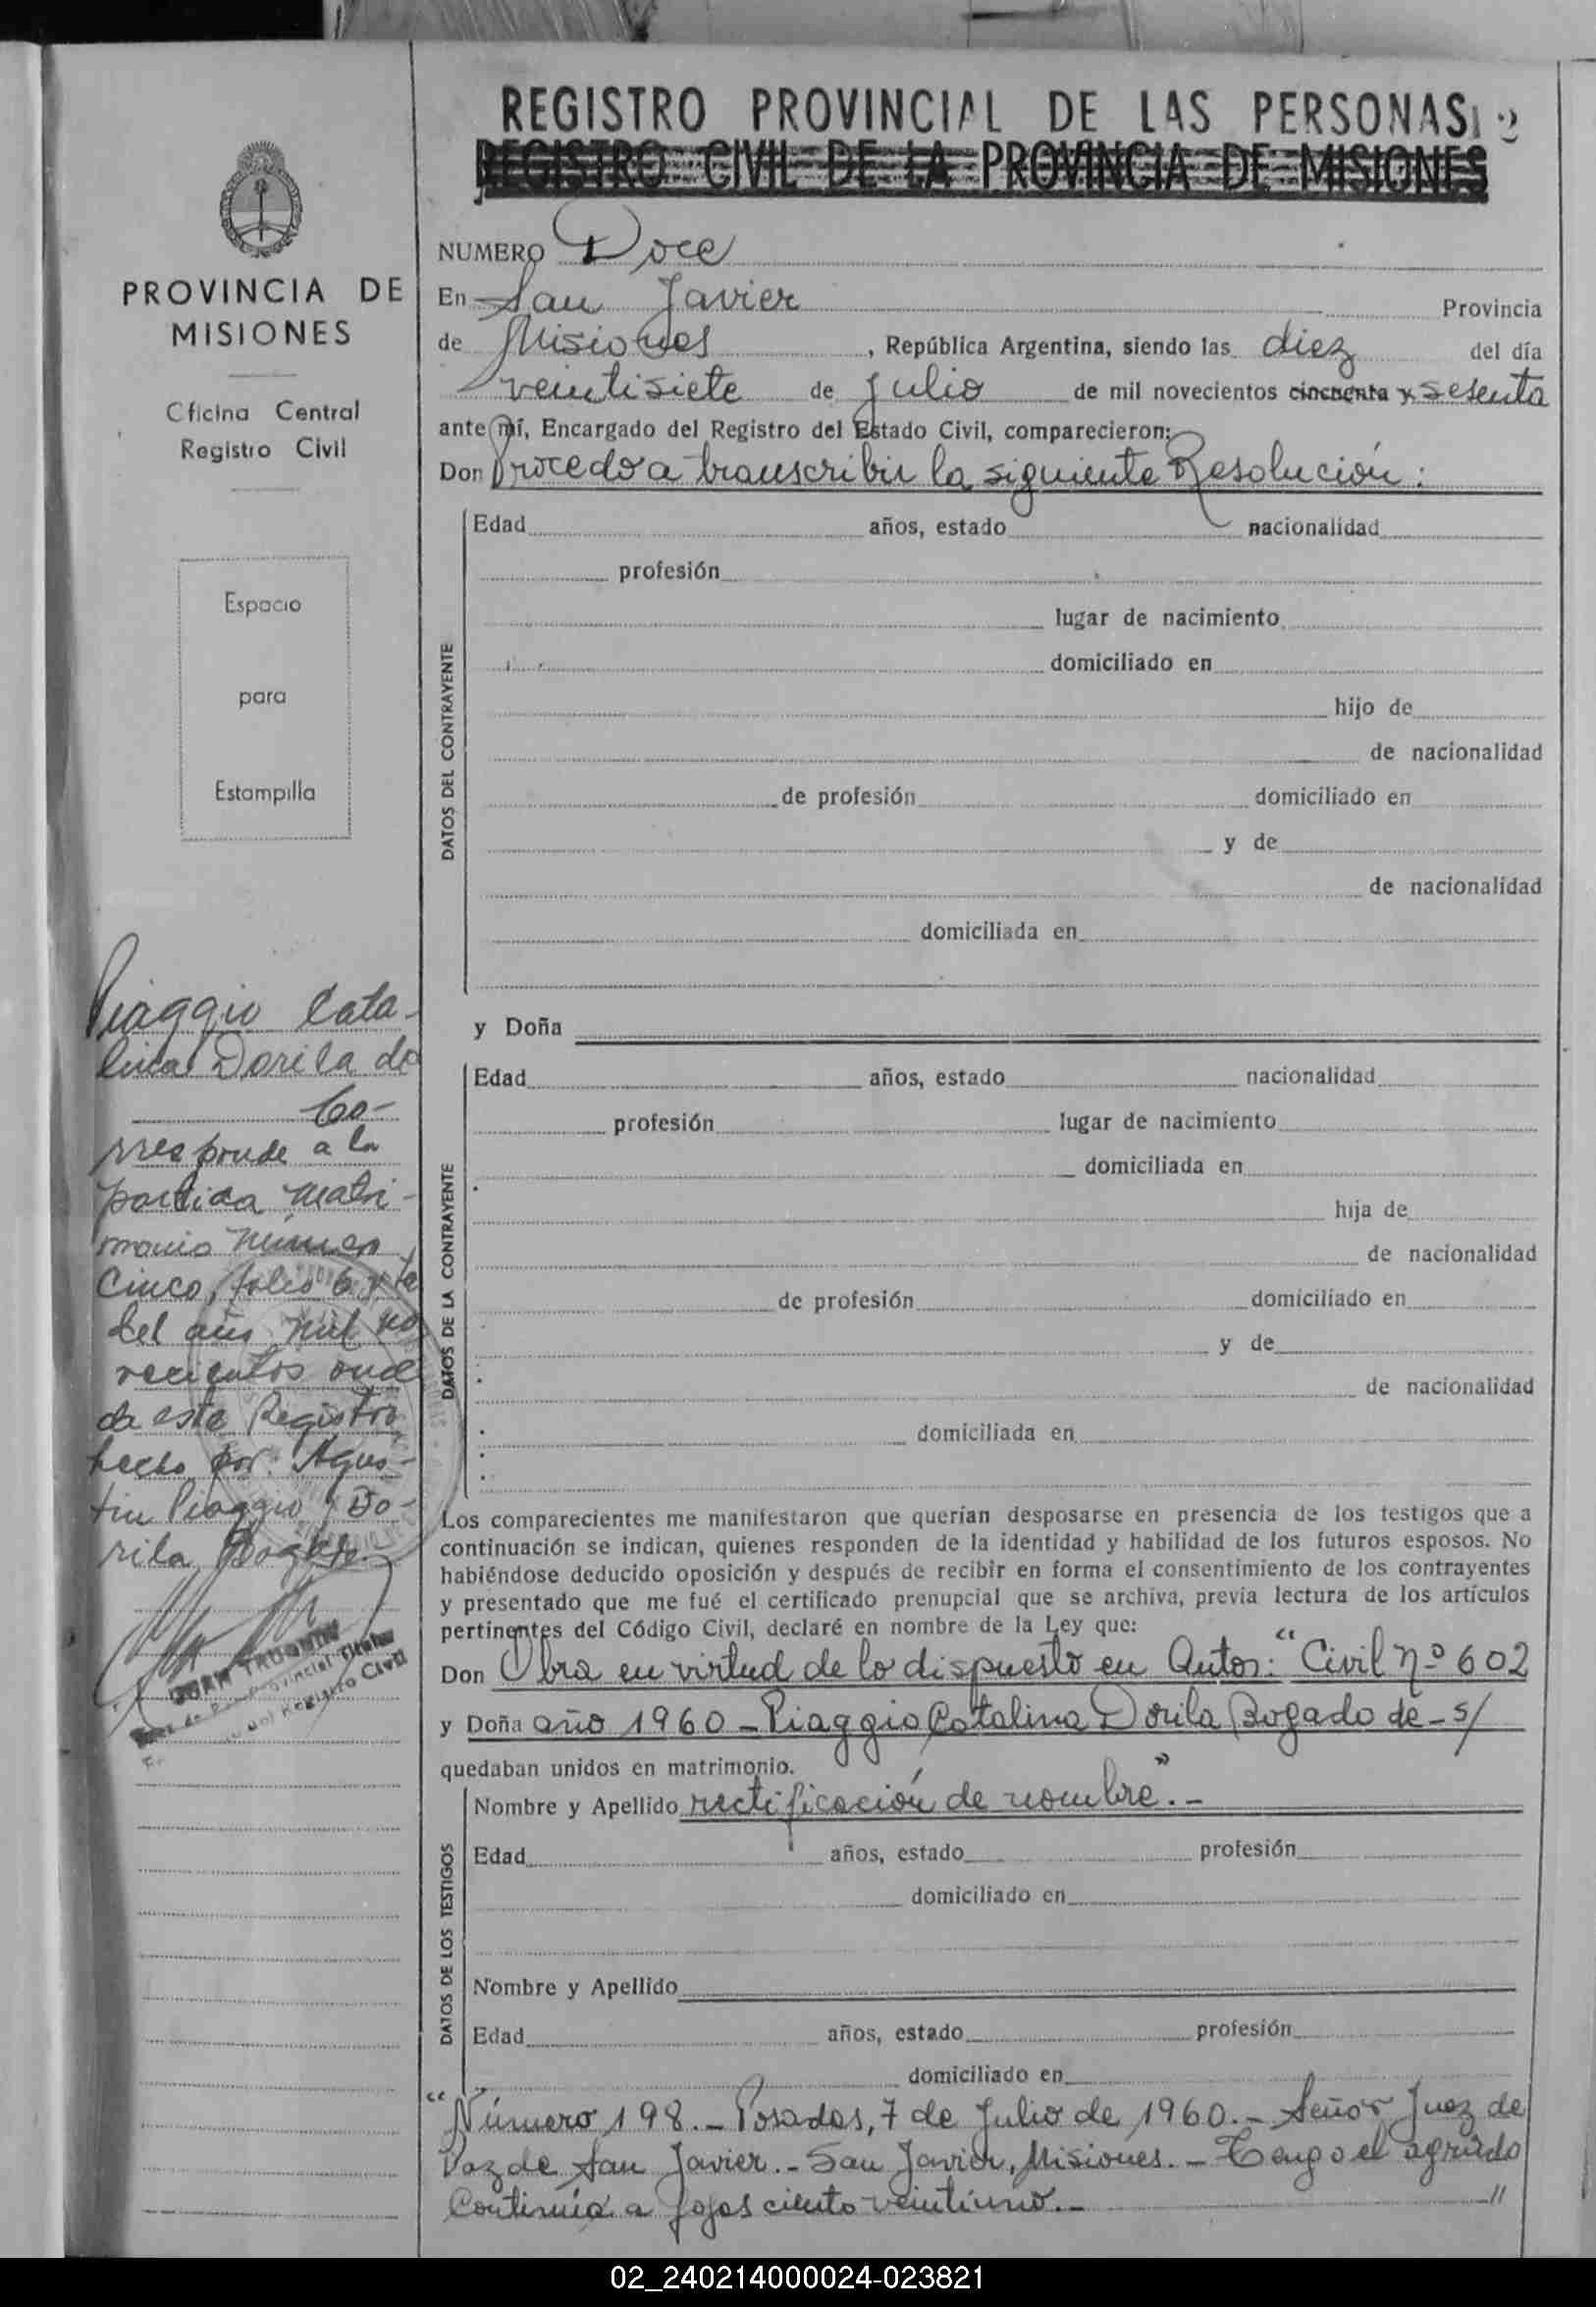 REGISTRO PROVINCIAL DE LAS PERSONAS
REGISTRO CIVIL DE LA PROVINCIA DE MISIONES
PROVINCIA DE
MISIONES
Oficina Central
Registro Civil
Espacio
para
Estampilla
Piaggio Cata-
lina Dorila de
Co-
rresponde a la
partida matri-
monio número
Cinco, folio 6 vta
del año mil no
vecientos once
de este Registro
hecho por: Agus-
tin Piaggio y Do-
rila
JUAN
Juez de Paz Provincial Titular
Registro Civil
NUMERO Doce
En San Javier Provincia
de Misiones, República Argentina, siendo las diez del día
veintisiete de Julio de mil novecientos cincuenta y sesenta
ante mí, Encargado del Registro del Estado Civil, comparecieron:
Don Procedo a transcribir la siguiente Resolución:
DATOS DEL CONTRAYENTE
Edad años, estado nacionalidad
profesión
lugar de nacimiento
domiciliado en
hijo de
de nacionalidad
de profesión domiciliado en
y de
de nacionalidad
domiciliada en
y Doña
DATOS DE LA CONTRAYENTE
Edad años, estado nacionalidad
profesión lugar de nacimiento
domiciliada en
hija de
de nacionalidad
de profesión domiciliado en
y de
de nacionalidad
domiciliada en
Los comparecientes me manifestaron que querían desposarse en presencia de los testigos que a
continuación se indican, quienes responden de la identidad y habilidad de los futuros esposos. No
habiéndose deducido oposición y después de recibir en forma el consentimiento de los contrayentes
y presentado que me fué el certificado prenupcial que se archiva, previa lectura de los artículos
pertinentes del Código Civil, declaré en nombre de la Ley que:
Don Obra en virtud de lo dispuesto en Autos: "Civil nº 602
y Doña año 1960 - Piaggio Catalina Dorila Bogado de - s/
quedaban unidos en matrimonio.
DATOS DE LOS TESTIGOS
Nombre y Apellido rectificación de nombre".-
Edad años, estado profesión
domiciliado en
Nombre y Apellido
Edad años, estado profesión
domiciliado en
"Número 198.- Posadas, 7 de Julio de 1960.- Señor Juez de
Paz de San Javier.- San Javier, Misiones.- Tengo el agrado
Continúa a fojas ciento veintiuno.- //
02_240214000024-023821